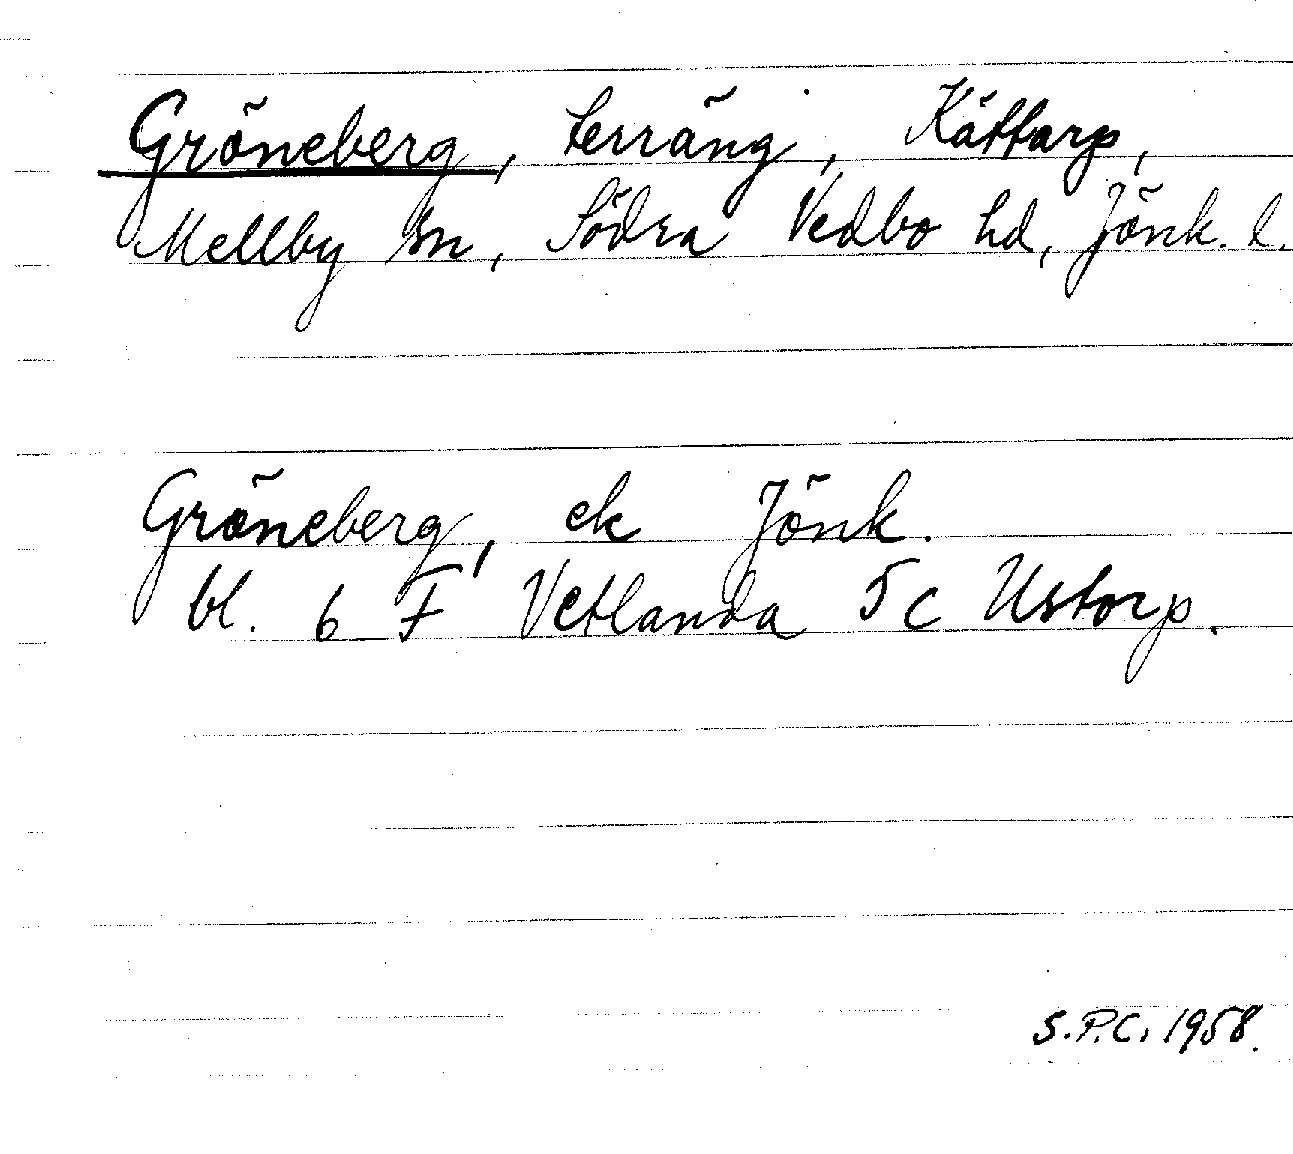 Gröneberg, terräng, Kättarp,
Mellby sn, Södra Vedbo hd, Jönk. l.
Gröneberg, ek Jönk.
bl. 6 F Vetlanda 5 c Ustorp.
S.P.C. 1958.